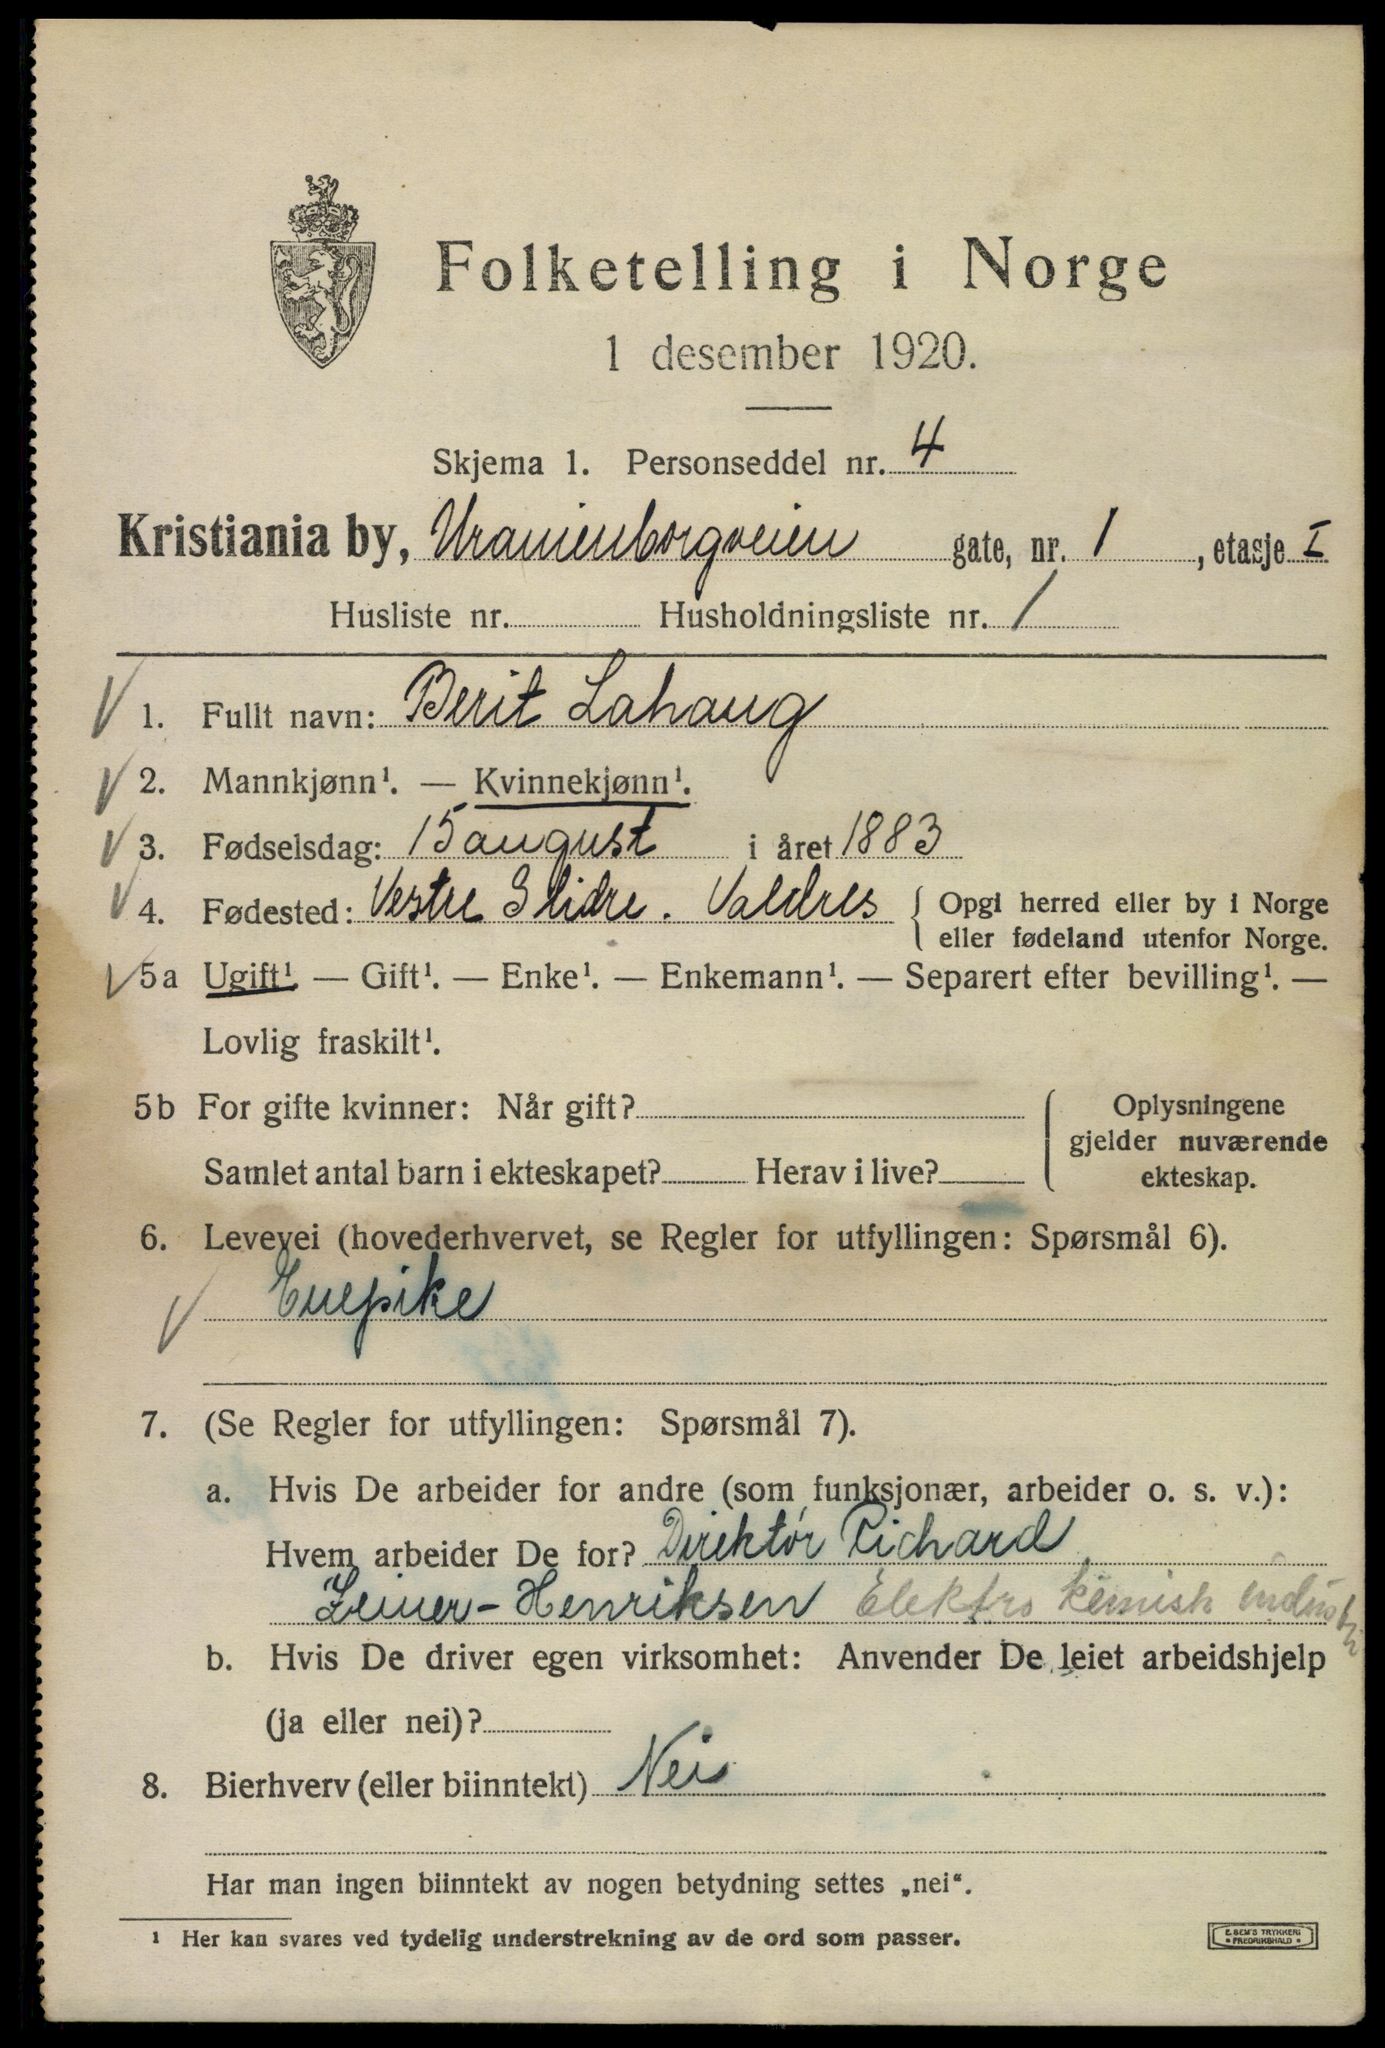 Folketelling i Norge
1 desember 1920.
Skjema 1. Personseddel nr. 4
Kristiania by, Uranienborgveien gate, nr. 1, etasje I
Husliste nr. Husholdningsliste nr. 1
1. Fullt navn: Berit Lahaug
2. Mannkjønn¹. — Kvinnekjønn¹.
3. Fødselsdag: 15 august i året 1883
4. Fødested: Vestre Slidre. Valdres { Opgi herred eller by i Norge
eller fødeland utenfor Norge.
5a Ugift¹. — Gift¹. — Enke¹. — Enkemann¹. — Separert efter bevilling¹. —
Lovlig fraskilt¹.
5b For gifte kvinner: Når gift? { Oplysningene
gjelder nuværende
Samlet antal barn i ekteskapet? Herav i live? ekteskap.
6. Levevei (hovederhvervet, se Regler for utfyllingen: Spørsmål 6).
Enepike
7. (Se Regler for utfyllingen: Spørsmål 7).
a. Hvis De arbeider for andre (som funksjonær, arbeider o. s. v.):
Hvem arbeider De for? Direktör Richard
Zeiner-Henriksen Elektro kemisk industri
b. Hvis De driver egen virksomhet: Anvender De leiet arbeidshjelp
(ja eller nei)?
8. Bierhverv (eller biinntekt) Nei
Har man ingen biinntekt av nogen betydning settes „nei“.
¹ Her kan svares ved tydelig understrekning av de ord som passer.
E. SEM'S TRYKKERI
• FREDRIKSHALD •